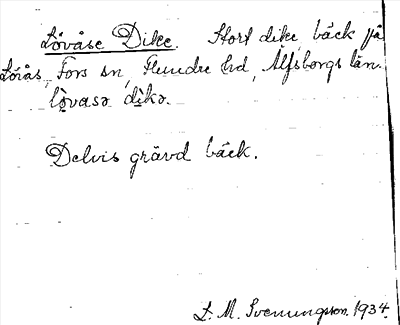 Lövåse Dike. Stort dike, bäck på
Lörås, Fors sn, Flundre hd, Älfsborgs län.
lȯvasə dikə.
Delvis grävd bäck.
L. M. Svenungsson. 1934.